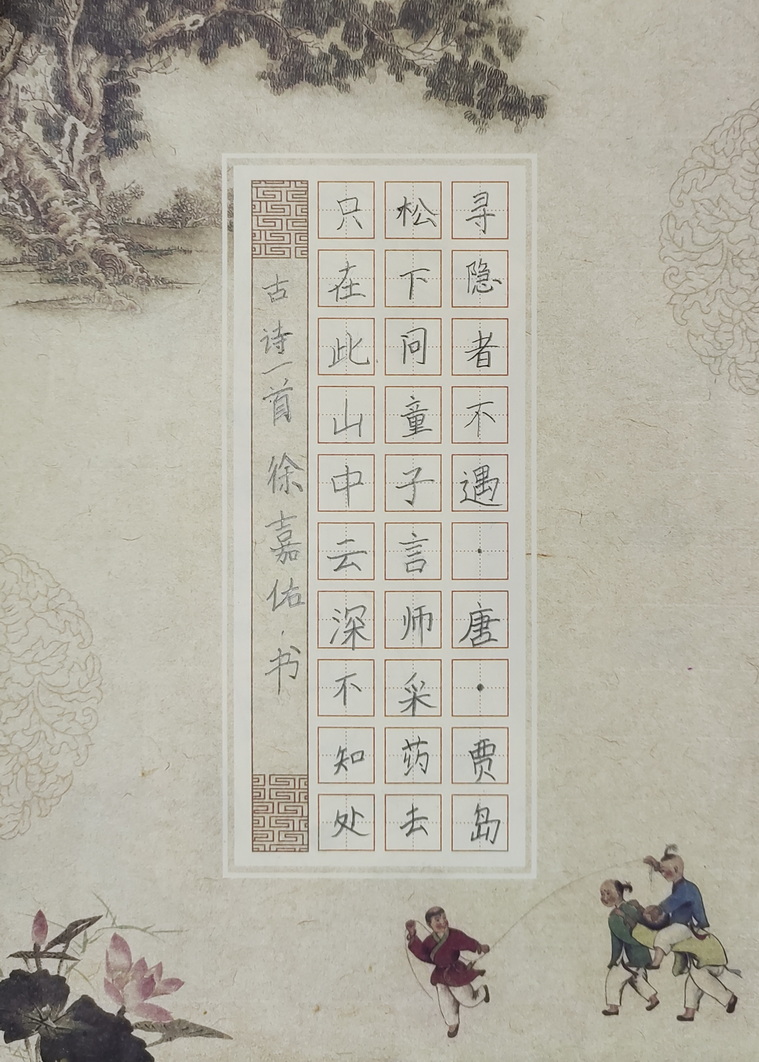 寻隐者不遇·唐·贾岛
松下问童子言师采药去
只在此山中云深不知处
古诗一首 徐嘉佑·书